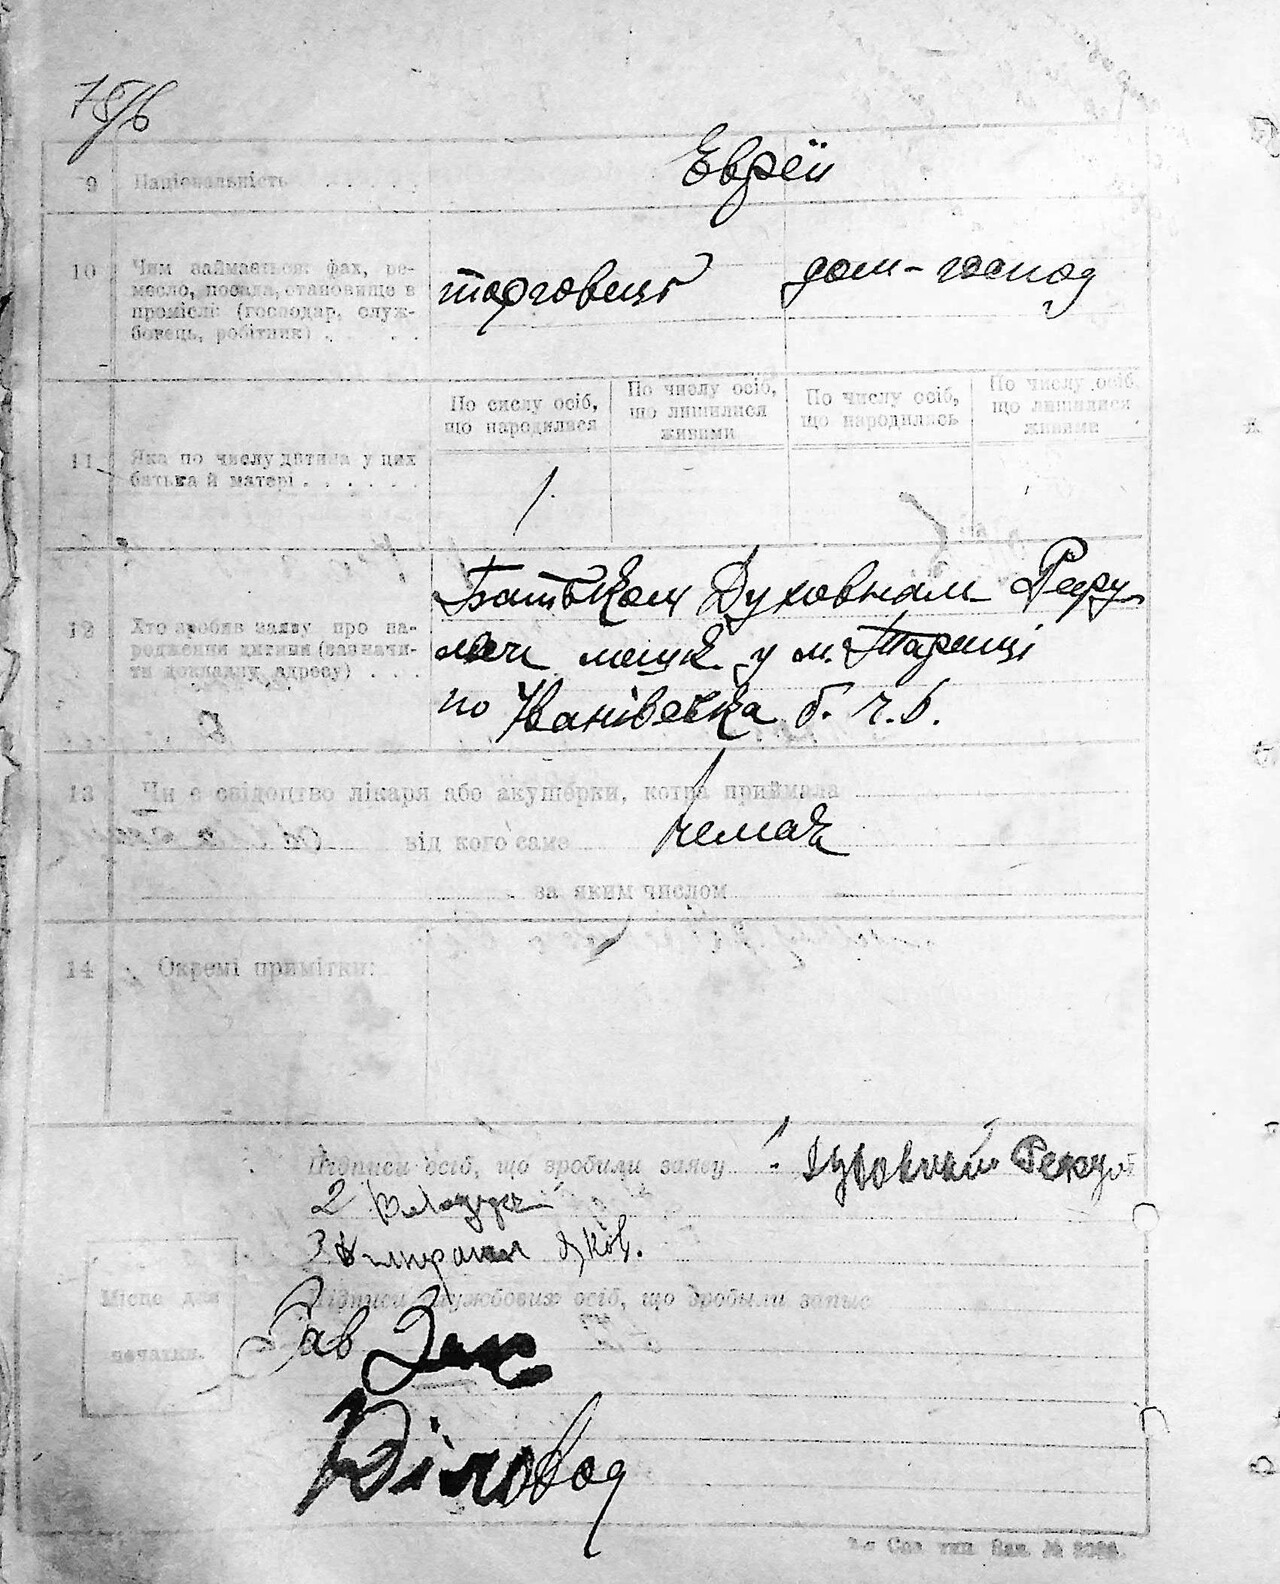 9 Національність
Еврей
10 Чим займається: фах, ре-
месло, посада, становище в
промислі (господар, служ-
бовець, робітник)
торговець дом-господ
По числу осіб,
що народилися
По числу осіб,
що лишилися
живими
По числу осіб,
що народились
По числу осіб,
що лишилися
живими
11 Яка по числу дитина у цих
батька й матері
1.
12 Хто зробив заяву про на-
родження дитини (зазначи-
ти докладну адресу)
Батьком Духовнам
мешк у м. Таращі
по б. ч. б.
13 Чи є свідоцтво лікаря або акушерки, котра приймала
від кого саме немає
за яким числом
14 Окремі примітки:
Підписи осіб, що зробили заяву 1. Духовний
2
3 Яков.
Місце для
печатки.
Підписи службових осіб, що зробили запис
Зав
Діловод